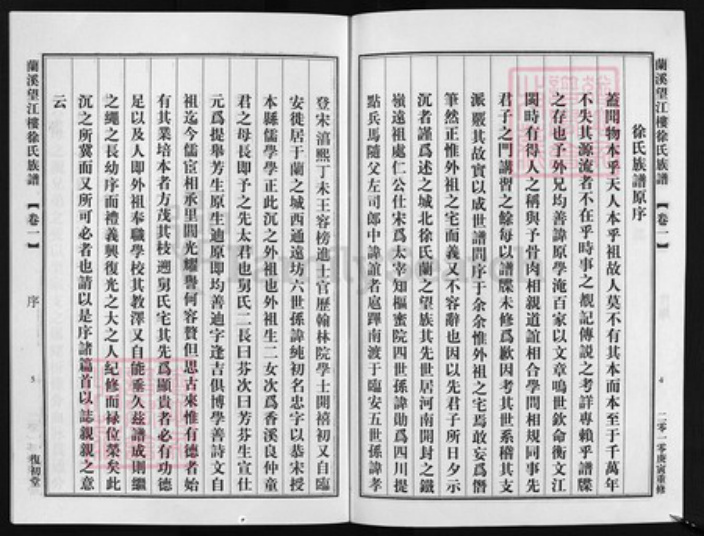 蘭溪望江樓徐氏族譜
【卷一】
4
二零一零庚寅重修
徐氏族譜原序
蓋聞物本乎天人本乎祖故人莫不有其本而本至于千萬年
不失其源流者不在乎時事之覩記傳說之考詳專賴乎譜牒
之存也予外兄均善諱原學淹百家以文章鳴世欽命衡文江
閩時有得人之稱與予骨肉相親道誼相合學問相規同事先
君子之門講習之餘每以譜牒未修爲歉因考其世系稽其支
派嚴其故實以成世譜問序于余余惟外祖之宅焉敢妄爲僭
筆然正惟外祖之宅而義又不容辭也因以先君子所日夕示
沉者謹爲述之城北徐氏蘭之望族其先世居河南開封之鐵
嶺遠祖處仁公仕宋爲太宰知樞蜜院四世孫諱勛爲四川提
點兵馬隨父左司郎中諱誼者扈蹕南渡于臨安五世孫諱孝
登宋淳熙丁未王容榜進士官歷翰林院學士開禧初又自臨
安徙居于蘭之城西通遠坊六世孫諱純初名忠字以恭宋授
本縣儒學學正此沉之外祖也外祖生二女次爲香溪良仲童
君之母長即予之先太君也舅氏二長曰芬次曰芳芬生宣仕
元爲提舉芳生原生迪原即均善迪字逢吉俱博學善詩文自
祖迄今儒宦相承里閭光耀譽何容贅但思古來惟有德者始
有其業培本者方茂其枝遡舅氏宅其先爲顯貴者必有功德
足以及人即外祖奉職學校其教澤又自能垂久茲譜成則繼
之繩之長幼序而禮義興復光之大之人紀修而祿位榮矣此
沉之所冀而又所可必者也請以是序諸篇首以誌親親之意
云
蘭溪望江樓徐氏族譜
【卷一】
序
5
復初堂